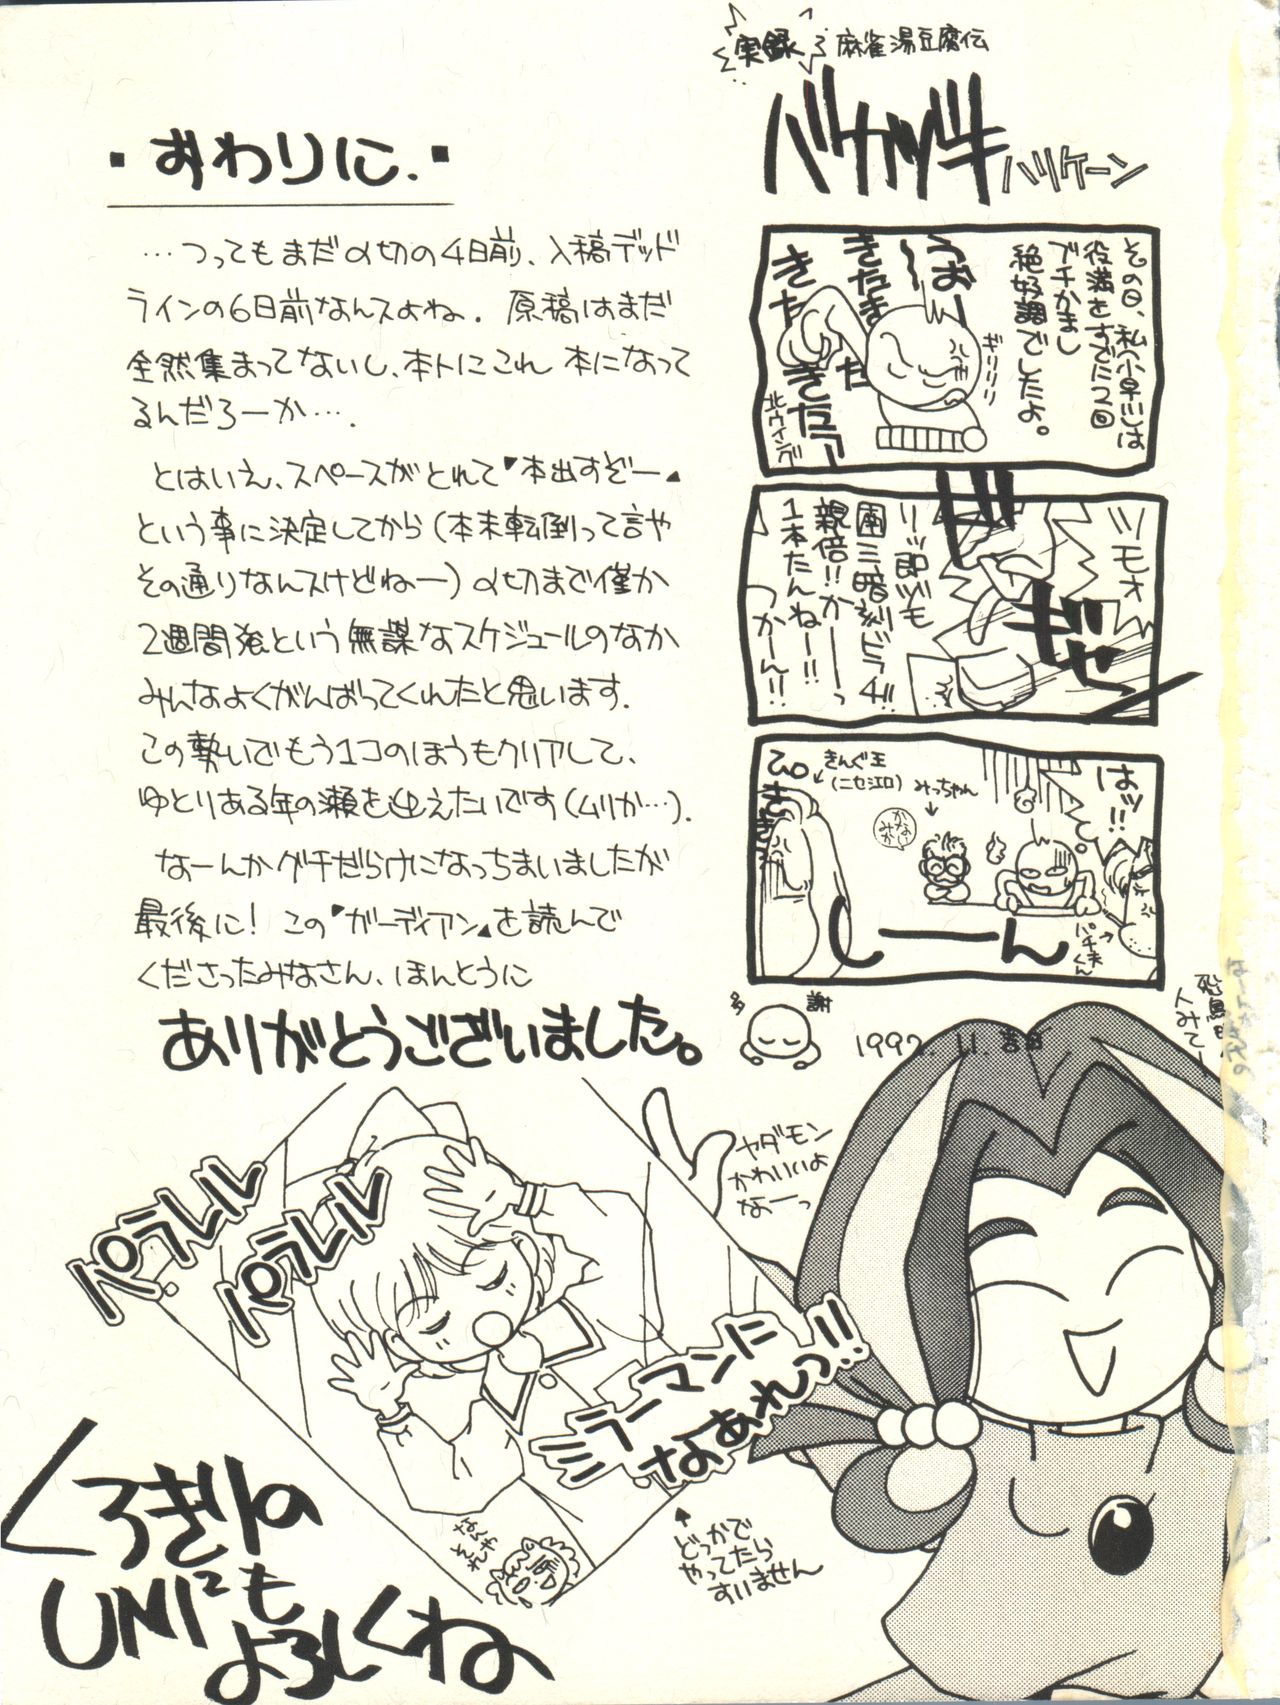 実録
麻雀湯豆腐伝
バカヅキ
ハリケーン
その日、私(小早)は
役満をすでに2回
ブチかまし
絶好調でしたよ。
ギリリリ
うおー〜
きたきた
きた
きたァー
北ウイング
ツモォ
リーッ即ヅモ
三暗刻ドラ4!!
親倍!!かーーっ
1本たんねー!!
つかーん!!
ギャン
はッ!!
きんぐ王
(ニセ江口)
みっちゃん
パチ夫くん
しーーん
・おわりに.・
…つってもまだ〆切の4日前、入稿デッド
ラインの6日前なんスよね. 原稿はまだ
全然集まってないし、本トにこれ 本になって
るんだろーか….
とはいえ、スペースがとれて"本出すぞー"
という事に決定してから(本末転倒って言や
その通りなんスけどねー)〆切まで僅か
2週間強という無謀なスケジュールのなか
みんなよくがんばってくれたと思います.
この勢いでもう1コのほうもクリアして、
ゆとりある年の瀬を迎えたいです(ムリか…).
なーんかグチだらけになっちまいましたが
最後に! この"ガーディアン"を読んで
くださったみなさん、ほんとうに
ありがとうございました。
多謝
1992.11.吉日
ヤダモン
かわいいよ
なーっ
パラレル
パラレル
ミラーマンに
なあれっ!!
なんや
それや
どっかで
やってたら
すいません
くろきりの
UNI²も
よろしくね